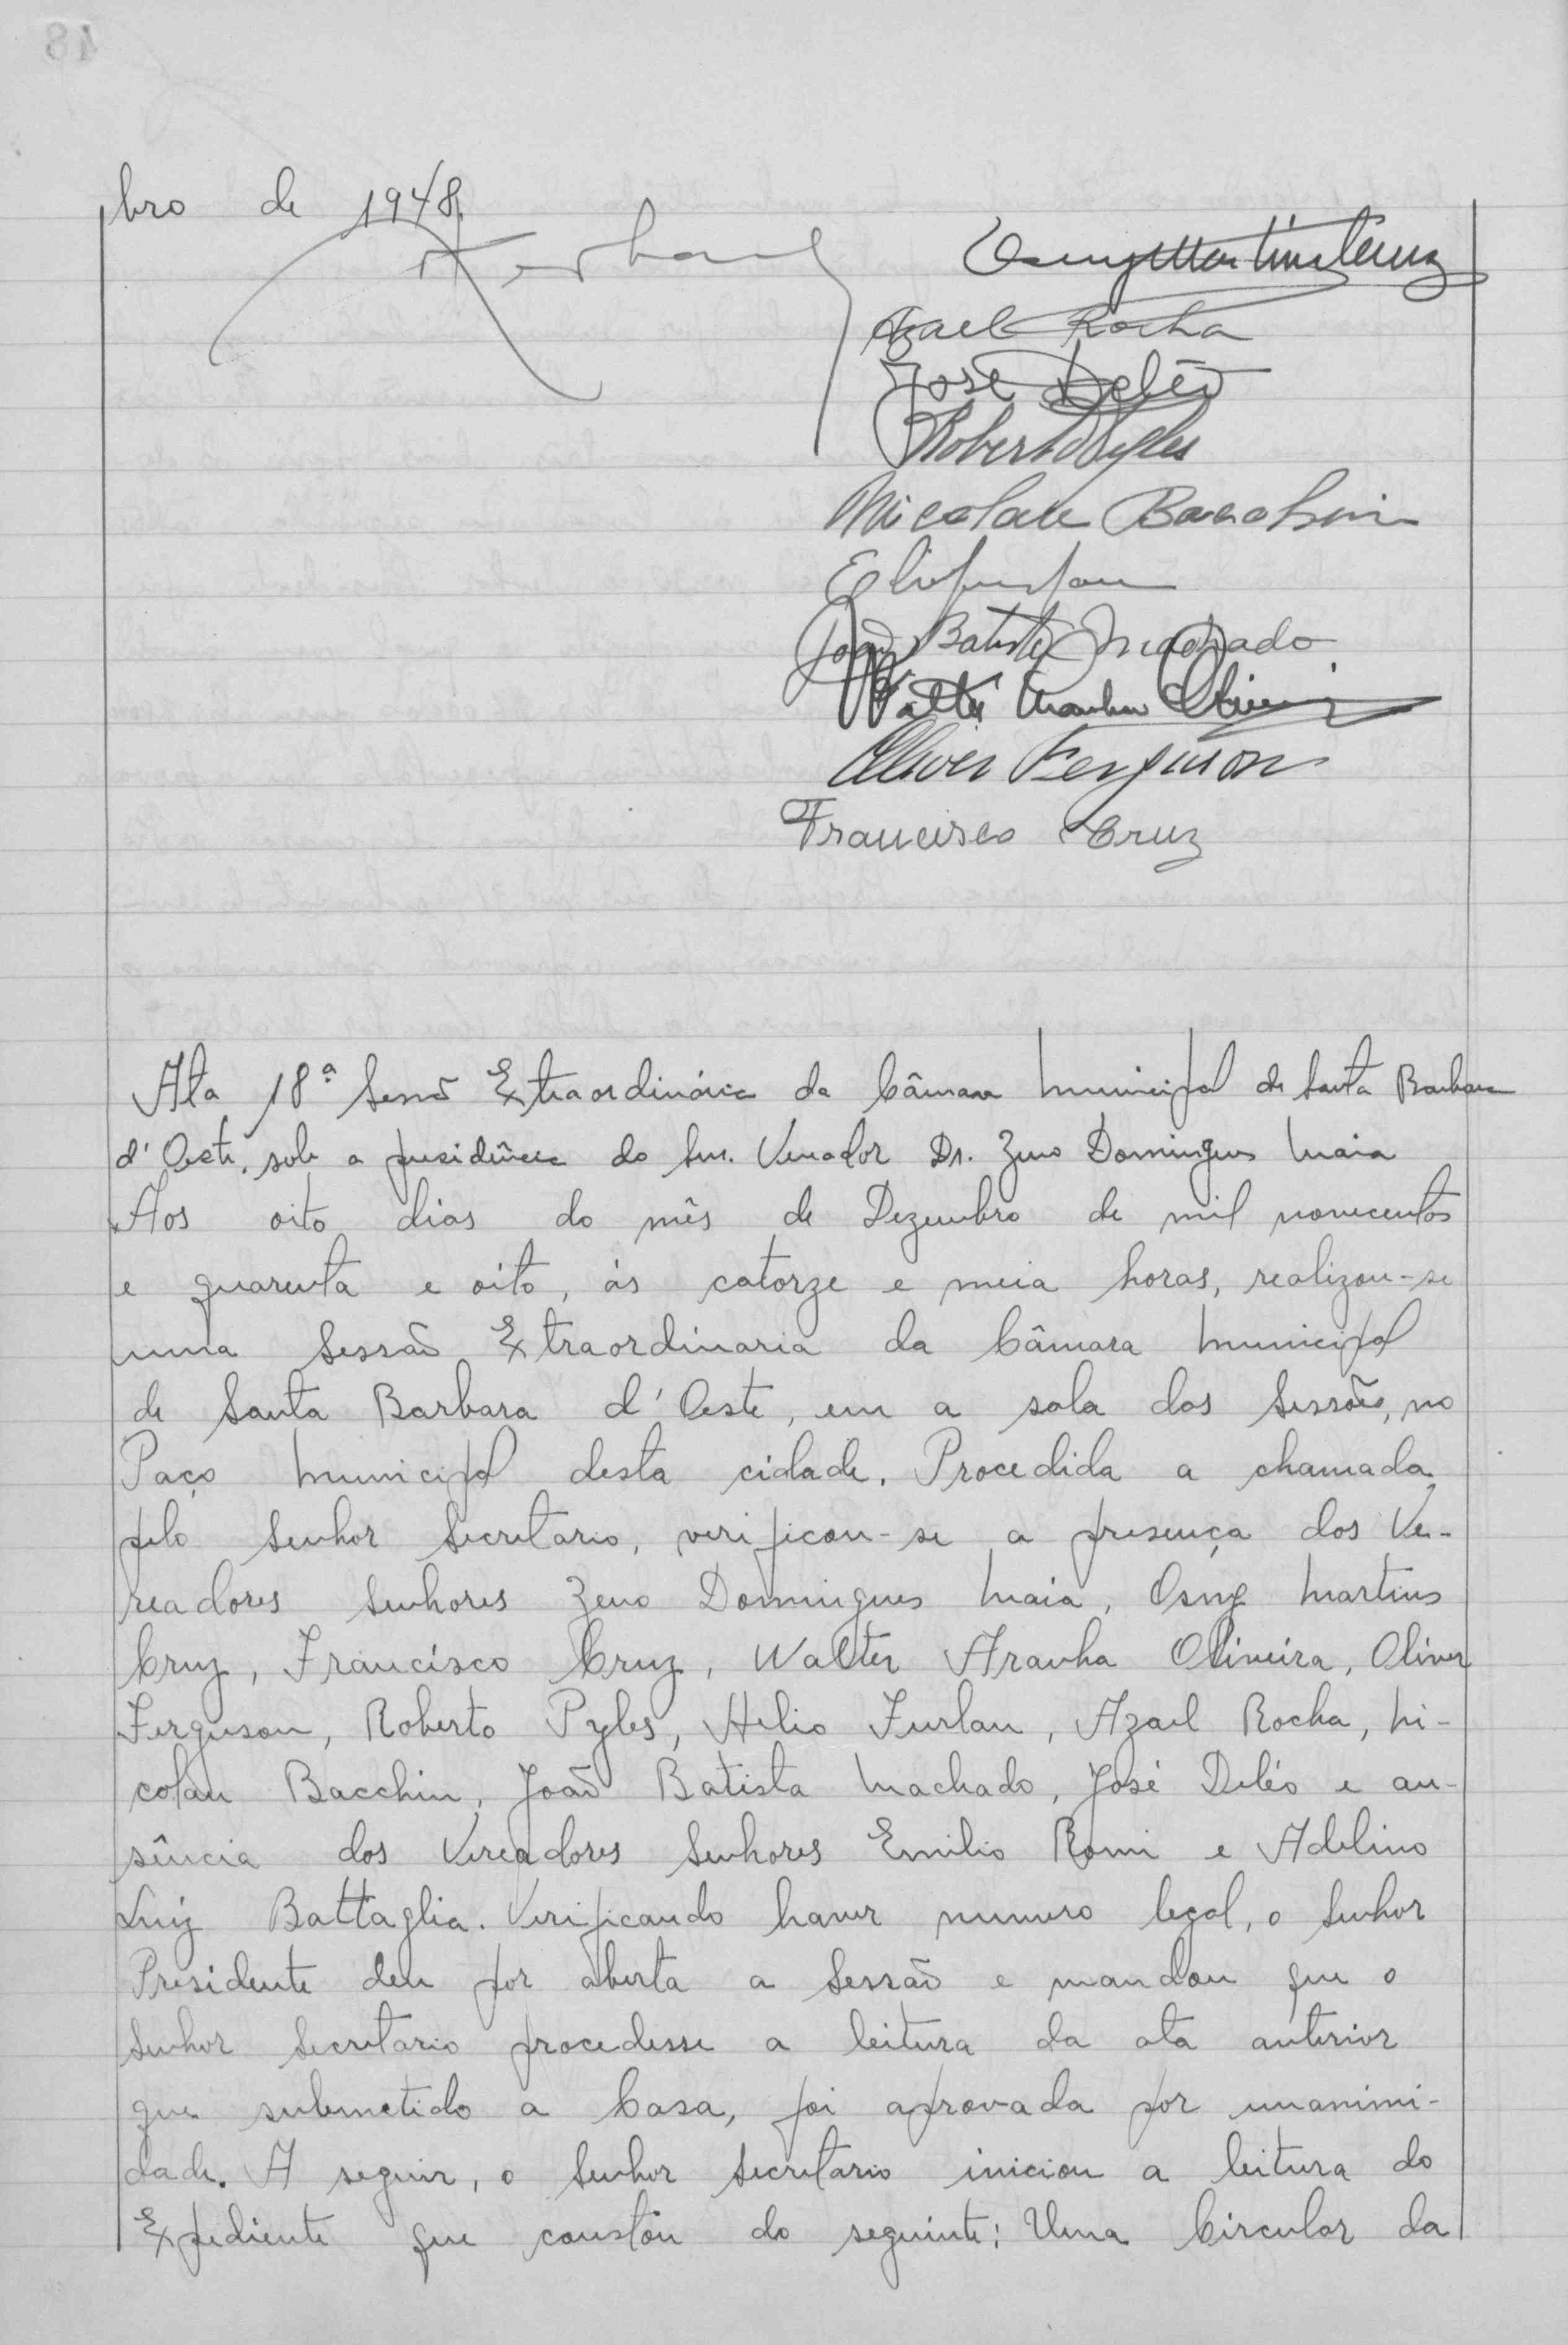 bro de 1948.
Osny Martins Cruz
Azael Rocha
José Deléo
Roberto Pyles
Nicolau Bacchin
João Batista Machado
Walter Aranha Oliveira
Oliver Ferguson
Francisco Cruz
Ata 18ª Sessão Extraordinária da Câmara Municipal de Santa Barbara
d'Oeste, sob a presidência do Snr. Vereador Dr. Zeno Domingues Maia
Aos oito dias do mês de Dezembro de mil novecentos
e quarenta e oito, ás catorze e meia horas, realizou-se
uma Sessão Extraordinaria da Câmara Municipal
de Santa Barbara d'Oeste, em a sala das Sessões, no
Paço Municipal desta cidade. Procedida a chamada
pelo Senhor Secretario, verificou-se a presença dos Ve-
readores Senhores Zeno Domingues Maia, Osny Martins
Cruz, Francisco Cruz, Walter Aranha Oliveira, Oliver
Ferguson, Roberto Pyles, Helio Furlan, Azael Rocha, Ni-
colau Bacchin, João Batista Machado, José Deléo e au-
sência dos Vereadores Senhores Emilio Romi e Adelino
Luiz Battaglia. Verificando haver numero legal, o Senhor
Presidente deu por aberta a Sessão e mandou que o
Senhor Secretario procedesse a leitura da ata anterior
que submetido a Casa, foi aprovada por unanimi-
dade. A seguir, o Senhor Secretario iniciou a leitura do
Expediente que constou do seguinte: Uma Circular da